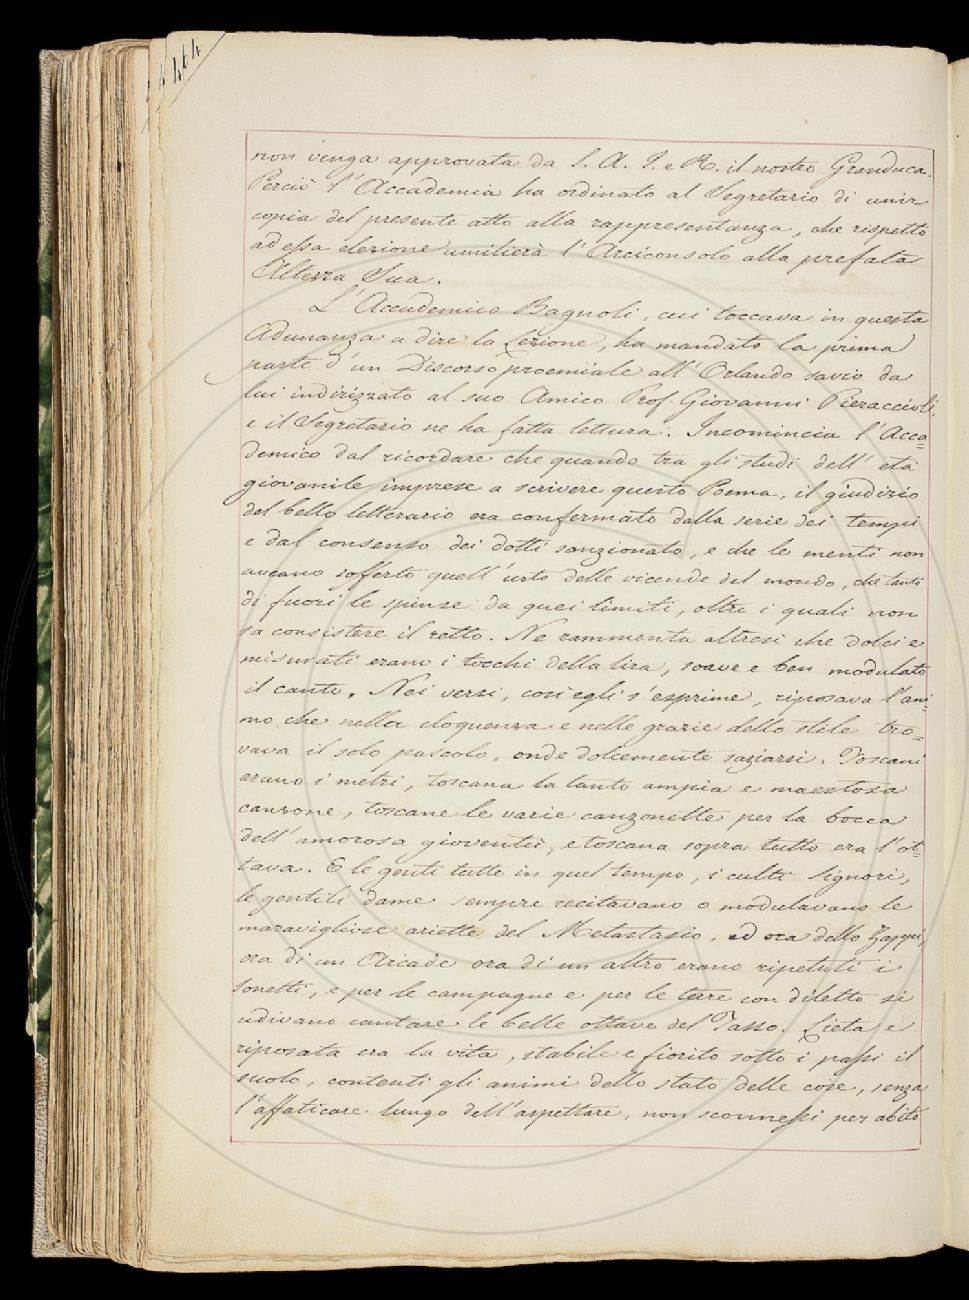 464
non venga approvata da S. A. I. e R. il nostro Granduca.
Perciò l'Accademia ha ordinato al Segretario di unir
copia del presente atto alla rappresentanza, che rispetto
ad essa elezione umilierà l'Arciconsolo alla prefata
Altezza Sua.
L'Accademico Bagnoli, cui toccava in questa
Adunanza a dire la Lezione, ha mandato la prima
parte d'un Discorso proemiale all'Orlando savio da
lui indirizzato al suo Amico Prof. Giovanni Pieraccioli,
e il Segretario ne ha fatta lettura. Incomincia l'Acca=
demico dal ricordare che quando tra gli studi dell'età
giovanile imprese a scrivere questo Poema, il giudizio
del bello letterario era confermato dalla serie dei tempi
e dal consenso dei dotti sanzionato, e che le menti non
aveano sofferto quell'urto delle vicende del mondo, che tanto
di fuori le spinse da quei limiti, oltre i quali non
sa consistere il retto. Ne rammenta altresì che dolci e
misurati erano i tocchi della lira, soave e ben modulato
il canto. Nei versi, così egli s'esprime, riposava l'ani=
mo che nella eloquenza e nelle grazie dello stile tro=
vava il solo pascolo, onde dolcemente saziarsi. Toscani
erano i metri, toscana la tanto ampia e maestosa
canzone, toscane le varie canzonette per la bocca
dell'amorosa gioventù, e toscana sopra tutto era l'ot=
tava. E le genti tutte in quel tempo, i culti Signori,
le gentili dame sempre recitavano o modulavano le
maravigliose ariette del Metastasio, ed ora dello Zappi,
ora di un Arcade ora di un altro erano ripetuti i
Sonetti, e per le campagne e per le terre con diletto si
udivano cantare le belle ottave del Tasso. Lieta e
riposata era la vita, stabile e fiorito sotto i passi il
suolo, contenti gli animi dello stato delle cose, senza
l'affaticare lungo dell'aspettare, non sconnessi per abito